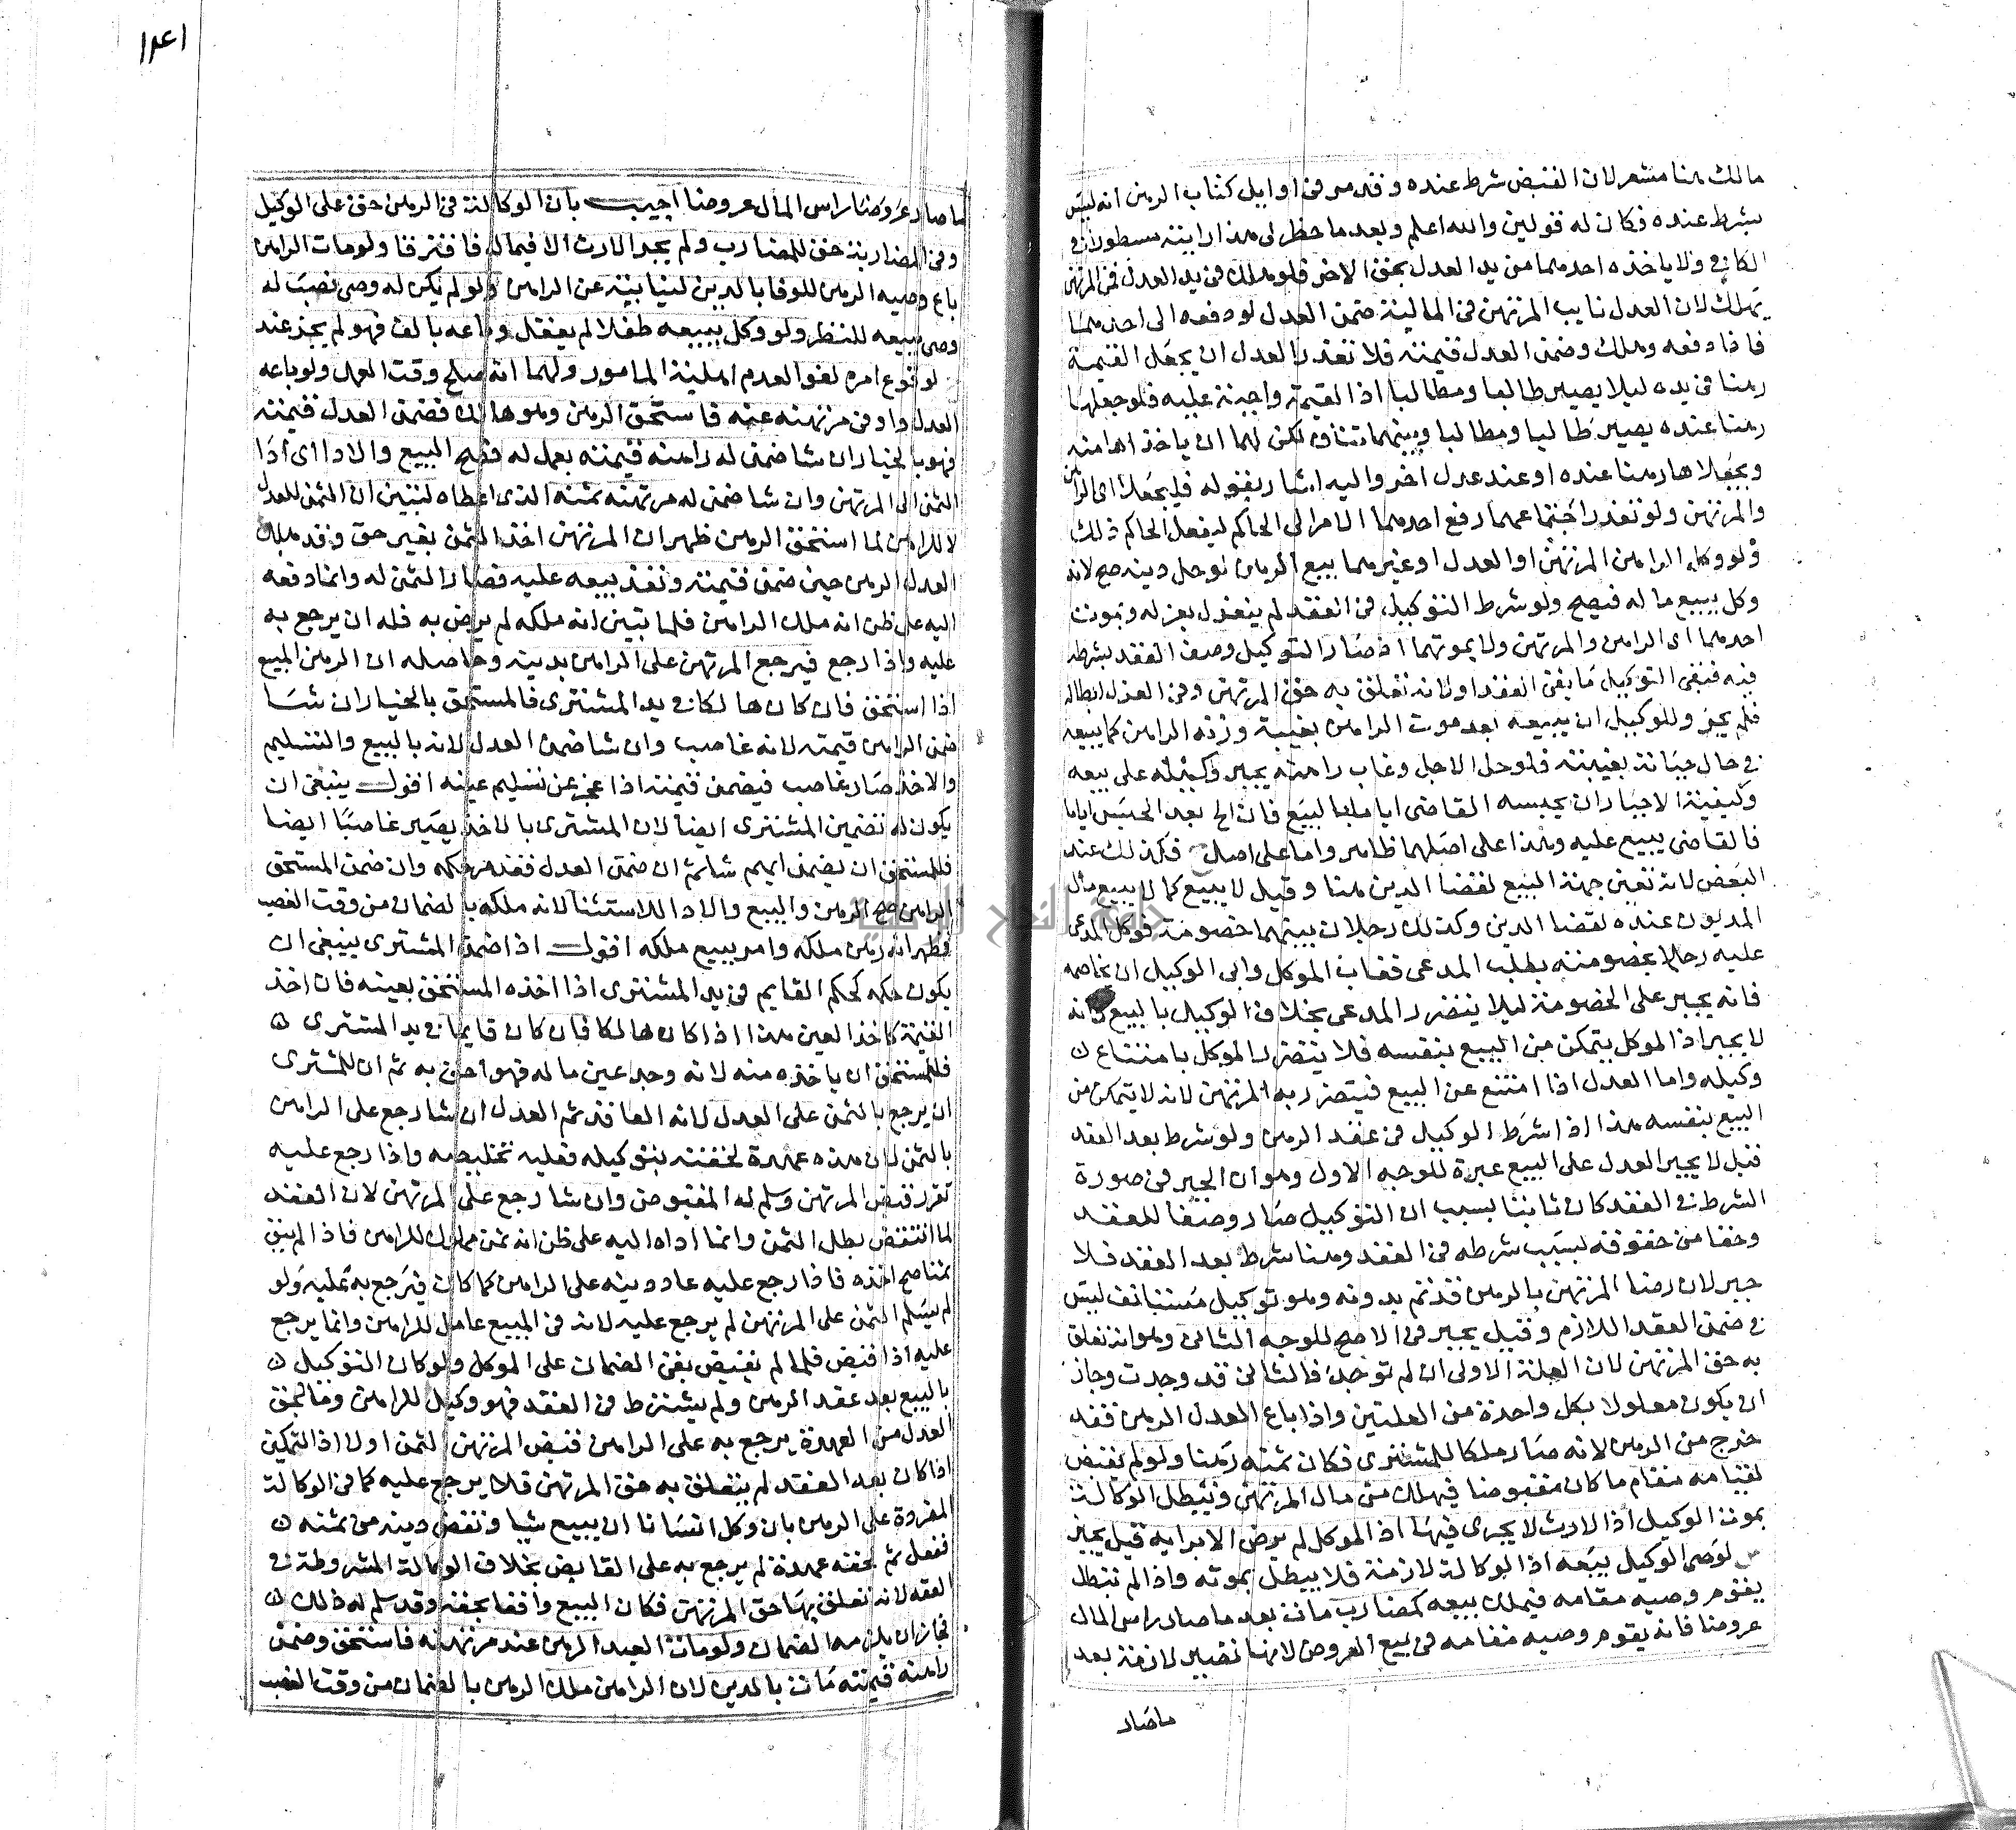 مالك هنا مشعر لان القبض شرط عنده وقد مر في اوايل كتاب الرهن انه ليس
بشرط عنده فكان له قولين والله اعلم وبعد ما خطر لي هذا رايته مسطورا في
الكافي ولا ياخذه احدهما من يد العدل بحق الاخر فلو هلك في يد العدل فمن المرتهن
يهلك لان العدل نايب المرتهن في المالية ضمن العدل لو دفعه الى احدهما
فاذا دفعه وهلك وضمن العدل قيمته فلا تقدر العدل ان يجعل القيمة
رهنا في يده ليلا يصير طالبا ومطالبا اذ القيمة واجبة عليه فلو جعلها
رهنا عنده يصير طالبا ومطالبا وبينهما تناف لكن لهما ان ياخذاها منه
ويجعلاها رهنا عنده او عند عدل اخر واليه اشار بقوله فليجعلا اى الراهن
والمرتهن ولو تعذر اجتماعهما رفع احدهما الامر الى الحاكم ليفعل الحاكم ذلك
ولو وكل الراهن المرتهن او العدل او غيرهما ببيع الرهن لو حل دينه صح لانه
وكل ببيع ماله فيصح ولو شرط التوكيل في العقد لم ينعزل بعزله وبموت
احدهما اى الراهن والمرتهن ولا بموتهما اذ صار التوكيل وصف العقد بشرطه
فيه فتبقى التوكيل ما بقى العقد اولانه تعلق به حق المرتهن وفي العزل ابطاله
فلم يجز وللوكيل ان يبيعه بعد موت الراهن بغيبة ورثة الراهن كما يبيعه
في حال حياته بغيبته فلو حل الاجل وغاب راهنه يجبر وكيله على بيعه
وكيفية الاجبار ان يحبسه القاضى اياما لبيع فان الح بعد الحبس اياما
فالقاضى يبيع عليه وهذا على اصلهما ظاهر واما على اصل ح فكذلك عند
البعض لانه تعين جهة البيع لقضا الدين هنا وقيل لا يبيع كما لا يبيع مال
المديون عنده لقضا الدين وكذلك رجلان بينهما خصومة فوكل المدعى
عليه رجلا بخصومته بطلب المدعى فغاب الموكل وابى الوكيل ان يخاصمه
فانه يجبر على الخصومة ليلا يتضرر المدعى بخلاف الوكيل بالبيع فانه
لا يجبر اذ الموكل يتمكن من البيع بنفسه فلا يتضرر الموكل بامتناع
وكيله واما العدل اذا امتنع عن البيع فيتضرر به المرتهن لانه لا يتمكن من
البيع بنفسه هذا اذا شرط الوكيل في عقد الرهن ولو شرط بعد العقد
قيل لا يجبر العدل على البيع عبرة للوجه الاول وهو ان الجبر في صورة
الشرط في العقد كان ثابتا بسبب ان التوكيل صار وصفا للعقد
وحقا من حقوقه بسبب شرطه في العقد وهنا شرط بعد العقد فلا
جبر لان رضا المرتهن بالرهن قد تم بدونه وهو توكيل مستانف ليس
في ضمن العقد اللازم وقيل يجبر في الاصح للوجه الثانى وهو انه تعلق
به حق المرتهن لان العلة الاولى ان لم توجد فالثانى قد وجدت وجاز
ان يكون معلولا بكل واحدة من العلتين واذا باع العدل الرهن فقد
خرج من الرهن لانه صار ملكا للمشترى فكان ثمنه رهنا ولو لم تقبض
لقيامه مقام ما كان مقبوضا فيهلك من مال المرتهن وتبطل الوكالة
بموت الوكيل اذ الارث لا يجرى فيها اذ الموكل لم يرض الا برايه قيل يجبر
لوصى الوكيل بيعه اذ الوكالة لازمة فلا يبطل بموته واذا لم تبطل
يقوم وصيه مقامه فيملك بيعه كمضارب مات بعد ما صار راس المال
عروضا فانه يقوم وصيه مقامه في بيع العروض لانها تصير لازمة بعد
ما صار
١٤١
ما صار عروضا راس المال عروضا اجيب بان الوكالة في الرهن حق على الوكيل
وفي المضاربة حق للمضارب ولم يجر الارث الا فيما له فافترقا ولو مات الراهن
باع وصيه الرهن للوفا بالدين لنيابته عن الراهن ولو لم يكن له وصى نصب له
وصى ببيعه للنظر ولو وكل ببيعه طفلا لم يعقل وباعه بالغ فهو لم يجز عند
لوقوع امره لغوا لعدم اهلية المامور ولهما انه صلح وقت العمل ولو باعه
العدل واوفى مرتهنه عنه فاستحق الرهن وهو هالك فضمن العدل قيمته
فهو بالخيار ان شا ضمن له راهنه قيمته بعمله فصح البيع والادا اى ادا
الثمن الى المرتهن وان شا ضمن له مرتهنه ثمنه الذى اعطاه لتبين ان الثمن للعدل
لا للراهن لما استحق الرهن ظهر ان المرتهن اخذ الثمن بغير حق وقد ملك
العدل الرهن حين ضمن قيمته ونفذ بيعه عليه فصار الثمن له وانما دفعه
اليه على ظن انه ملك الراهن فلما تبين انه ملكه لم يرض به فله ان يرجع به
عليه واذا رجع فيرجع المرتهن على الراهن بدينه وحاصله ان الرهن المبيع
اذا استحق فان كان هالكا في يد المشترى فالمستحق بالخيار ان شا
ضمن الراهن قيمته لانه غاصب وان شا ضمن العدل لانه بالبيع والتسليم
والاخذ صار غاصب فيضمن قيمته اذا عجز عن تسليم عينه اقول ينبغى ان
يكون له تضمين المشترى ايضا لان المشترى بالاخذ يصير غاصبا ايضا
فللمستحق ان يضمن ايهم شا ثم ان ضمن العدل فقد مر حكمه وان ضمن المستحق
الراهن صح الرهن والبيع والادا للاستثنا لانه ملكه بالضمان من وقت الغصب
فظهر انه رهن ملكه وامر ببيع ملكه اقول اذا ضمن المشترى ينبغى ان
يكون حكمه كحكم القايم في يد المشترى اذا اخذه المستحق بعينه فان اخذ
القيمة كاخذ العين هذا اذا كان هالكا فان كان قايما في يد المشترى
فللمستحق ان ياخذه منه لانه وجد عين ماله فهو احق به ثم ان للمشترى
ان يرجع بالثمن على العدل لانه العاقد ثم العدل ان شا رجع على الراهن
بالثمن لان هذه عهدة لحقته بتوكيله فعليه تخليصه واذا رجع عليه
تقرر قبض المرتهن وسلم له المقبوض وان شا رجع على المرتهن لان العقد
لما انتقض بطل الثمن وانما اداه اليه على ظن انه ثمن مملوك للراهن فاذا لم يبق
ثمنا صح اخذه فاذا رجع عليه عاد دينه على الراهن كما كان فيرجع به عليه ولو
لم يسلم الثمن على المرتهن لم يرجع عليه لانه في المبيع عامل للراهن وانما يرجع
عليه اذا قبض فلما لم يقبض بقى الضمان على الموكل ولو كان التوكيل
بالبيع بعد عقد الرهن ولم يشترط في العقد فهو وكيل للراهن وما لحق
العدل من العهدة يرجع به على الراهن قبض المرتهن الثمن او لا اذ التمكين
اذا كان بعد العقد لم يتعلق به حق المرتهن فلا يرجع عليه كما في الوكالة
المفردة على الرهن بان وكل انسانا ان يبيع شيا ونقض دينه من ثمنه
ففعل ثم لحقه عهدة لم يرجع به على القابض بخلاف الوكالة المشروطة في
العقد لانه تعلق بها حق المرتهن فكان البيع واقعا بحقه وقد سلم له ذلك
فجاز ان يلزمه الضمان ولو مات العبد الرهن عند مرتهنه فاستحق وضمن
راهنه قيمته مات بالدين لان الراهن ملك الرهن بالضمان من وقت الغصب
جامعة النجاح الوطنية